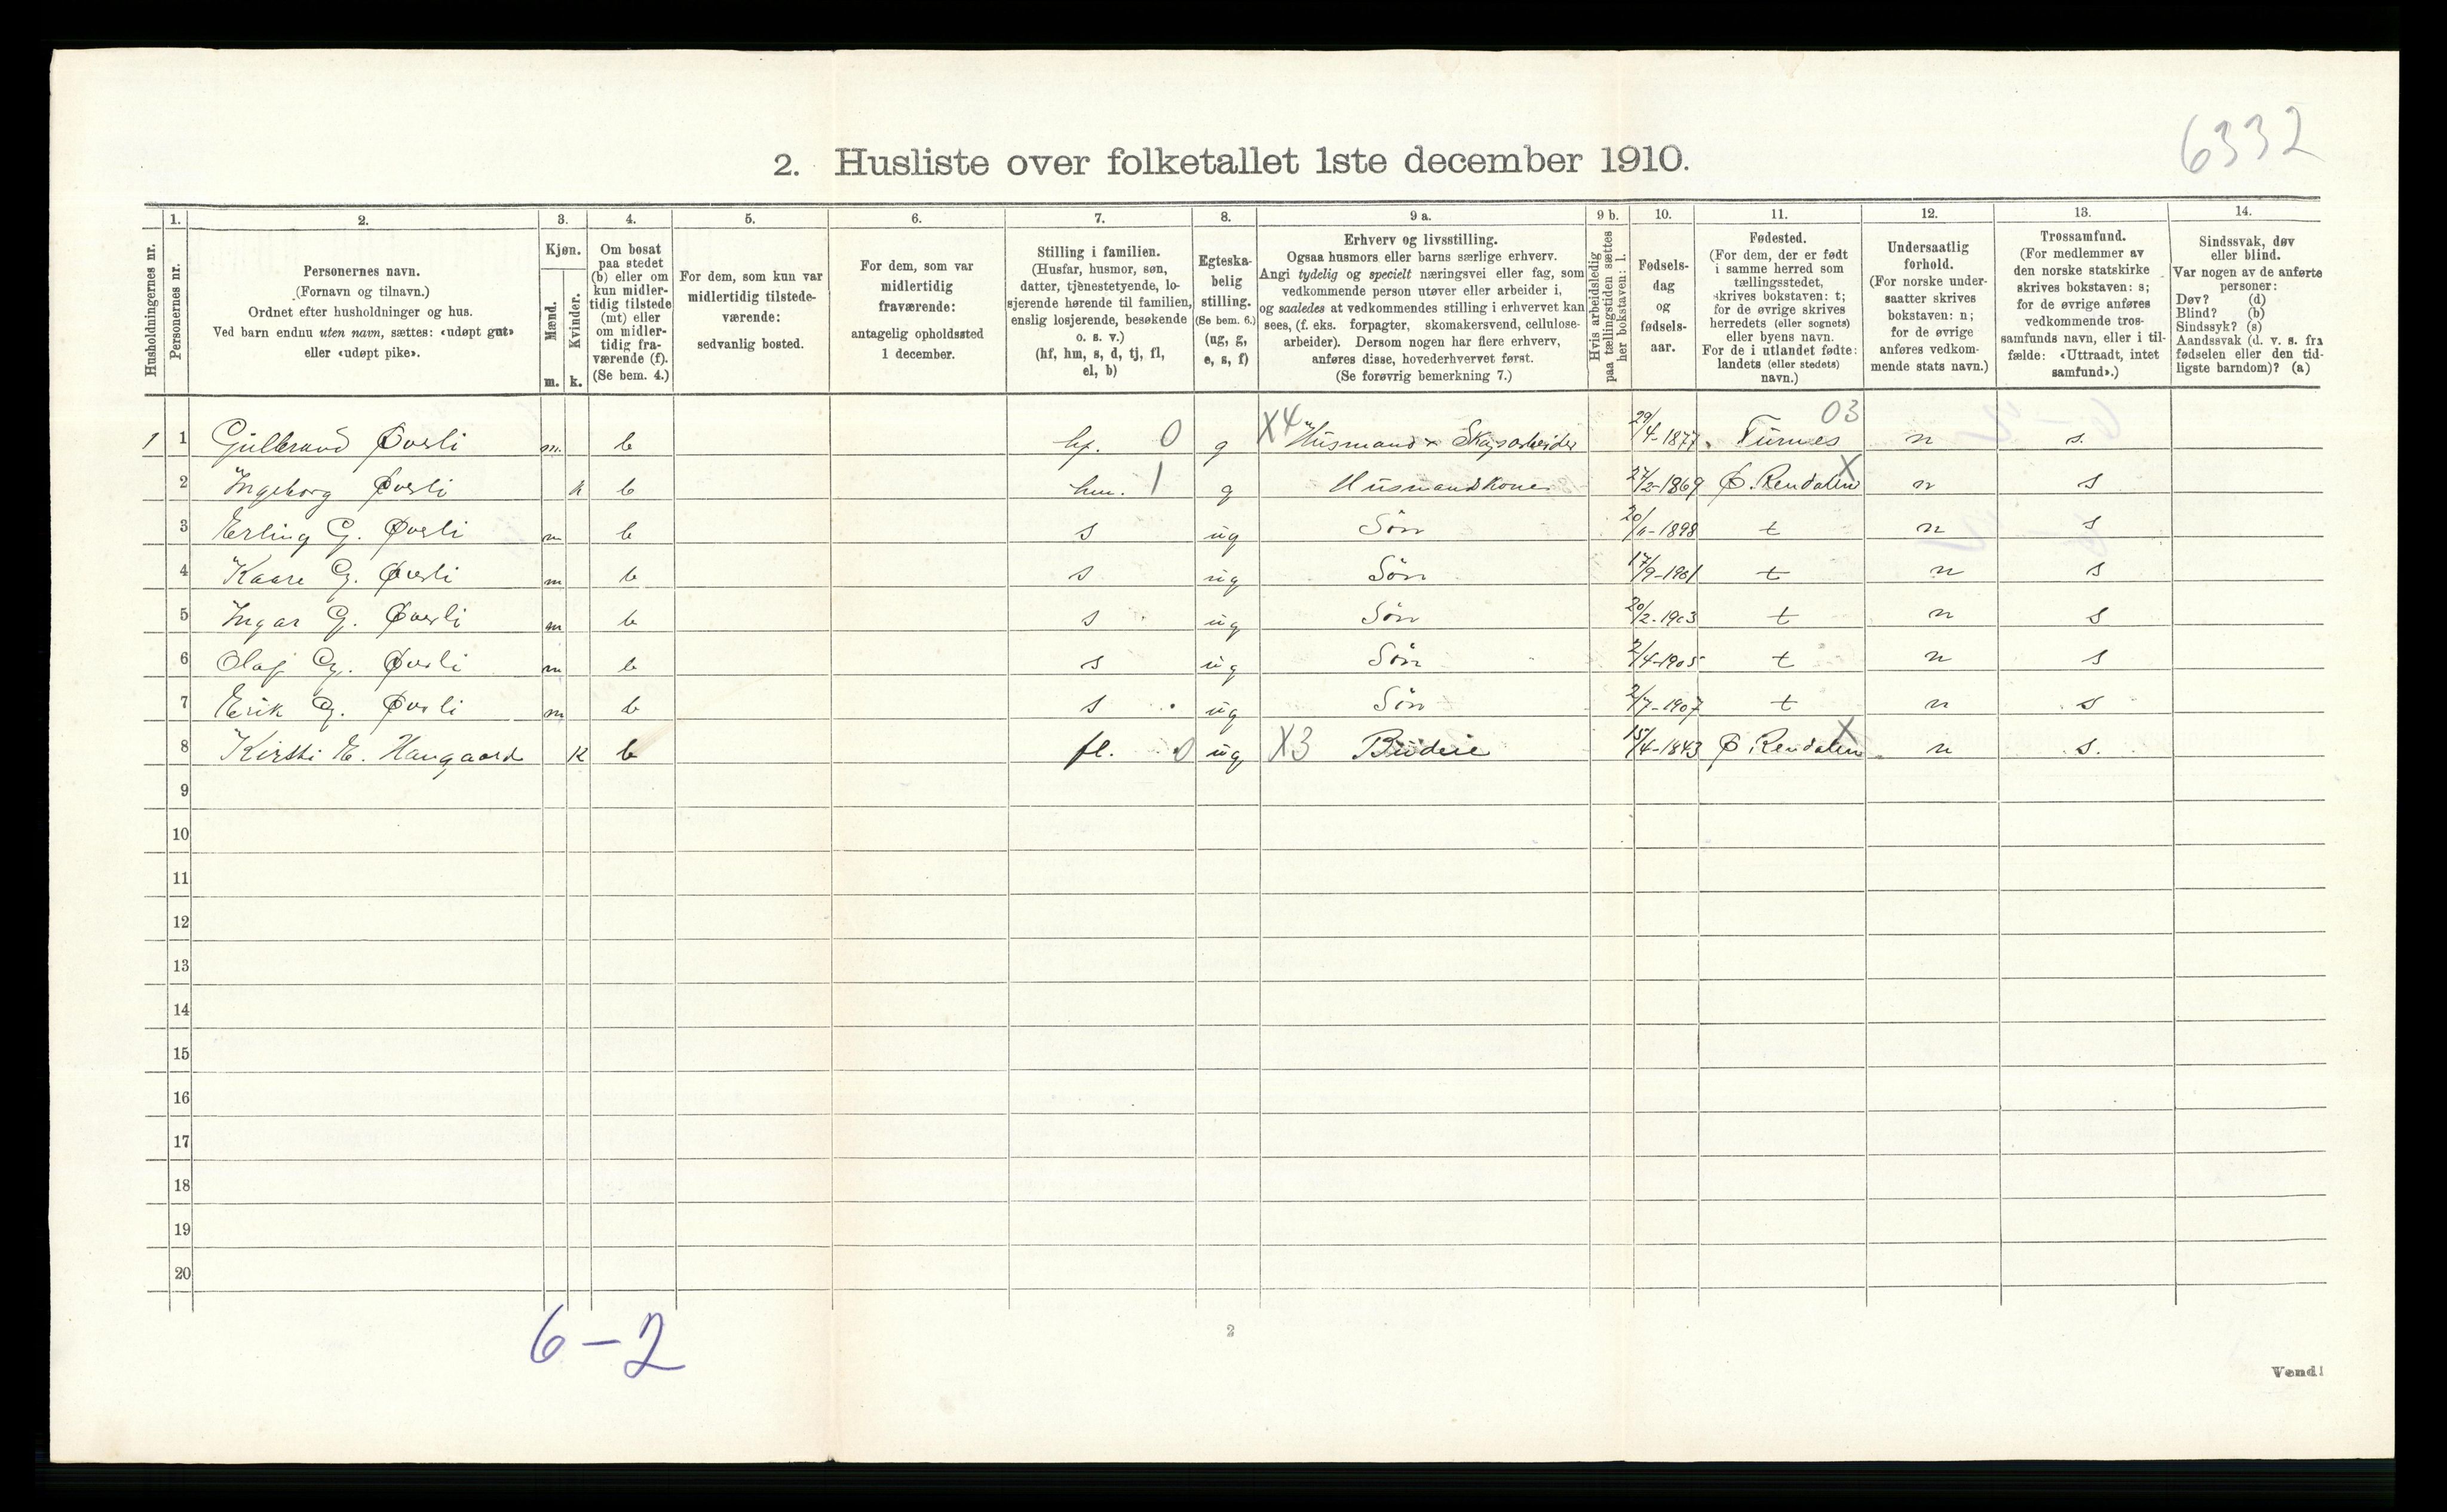 6332
2. Husliste over folketallet 1ste december 1910.
Husholdningernes nr.
1.
Personernes nr.
2.
Personernes navn.
(Fornavn og tilnavn.)
Ordnet efter husholdninger og hus.
Ved barn endnu uten navn, sættes: «udøpt gut»
eller «udøpt pike».
3.
Kjøn.
Mænd.
Kvinder.
m. k.
4.
Om bosat
paa stedet
(b) eller om
kun midler-
tidig tilstede
(mt) eller
om midler-
tidig fra-
værende (f).
(Se bem. 4.)
5.
For dem, som kun var
midlertidig tilstede-
værende:
sedvanlig bosted.
6.
For dem, som var
midlertidig
fraværende:
antagelig opholdssted
1 december.
7.
Stilling i familien.
(Husfar, husmor, søn,
datter, tjenestetyende, lo-
sjerende hørende til familien,
enslig losjerende, besøkende
o. s. v.)
(hf, hm, s, d, tj, fl,
el, b)
8.
Egteska-
belig
stilling.
(Se bem. 6.)
(ug, g,
e, s, f)
9 a.
Erhverv og livsstilling.
Ogsaa husmors eller barns særlige erhverv.
Angi tydelig og specielt næringsvei eller fag, som
vedkommende person utøver eller arbeider i,
og saaledes at vedkommendes stilling i erhvervet kan
sees, (f. eks. forpagter, skomakersvend, cellulose-
arbeider). Dersom nogen har flere erhverv,
anføres disse, hovederhvervet først.
(Se forøvrig bemerkning 7.)
9 b.
Hvis arbeidsledig
paa tællingstiden sættes
her bokstaven: l.
10.
Fødsels-
dag
og
fødsels-
aar.
11.
Fødested.
(For dem, der er født
i samme herred som
tællingsstedet,
skrives bokstaven: t;
for de øvrige skrives
herredets (eller sognets)
eller byens navn.
For de i utlandet fødte:
landets (eller stedets)
navn.)
12.
Undersaatlig
forhold.
(For norske under-
saatter skrives
bokstaven: n;
for de øvrige
anføres vedkom-
mende stats navn.)
13.
Trossamfund.
(For medlemmer av
den norske statskirke
skrives bokstaven: s;
for de øvrige anføres
vedkommende tros-
samfunds navn, eller i til-
fælde: «Uttraadt, intet
samfund».)
14.
Sindssvak, døv
eller blind.
Var nogen av de anførte
personer:
Døv? (d)
Blind? (b)
Sindssyk? (s)
Aandssvak (d. v. s. fra
fødselen eller den tid-
ligste barndom)? (a)
1 1 Gulbrand Øverli m. b hf. 0 g X4 Husmand x Skogsarbeider 29/4-1877 Furnes 03 n s.
2 Ingeborg Øverli k b hm. 1 g Husmandskone 27/2-1869 Ø. Rendalen X n s
3 Erling G. Øverli m b s ug Sön 20/11-1898 t n s
4 Kaare G. Øverli m b s ug Sön 17/9-1901 t n s
5 Ingar G. Øverli m b s ug Sön 20/2-1903 t n s
6 Olaf G. Øverli m b s ug Sön 2/4-1905 t n s
7 Erik G. Øverli m b s ug Sön 2/7-1907 t n s
8 Kirsti E. Haugaard k b fl. 0 ug X3 Budeie 15/4-1843 Ø. Rendalen X n s.
9
10
11
12
13
14
15
16
17
18
19
20
6-2
2
Vend!